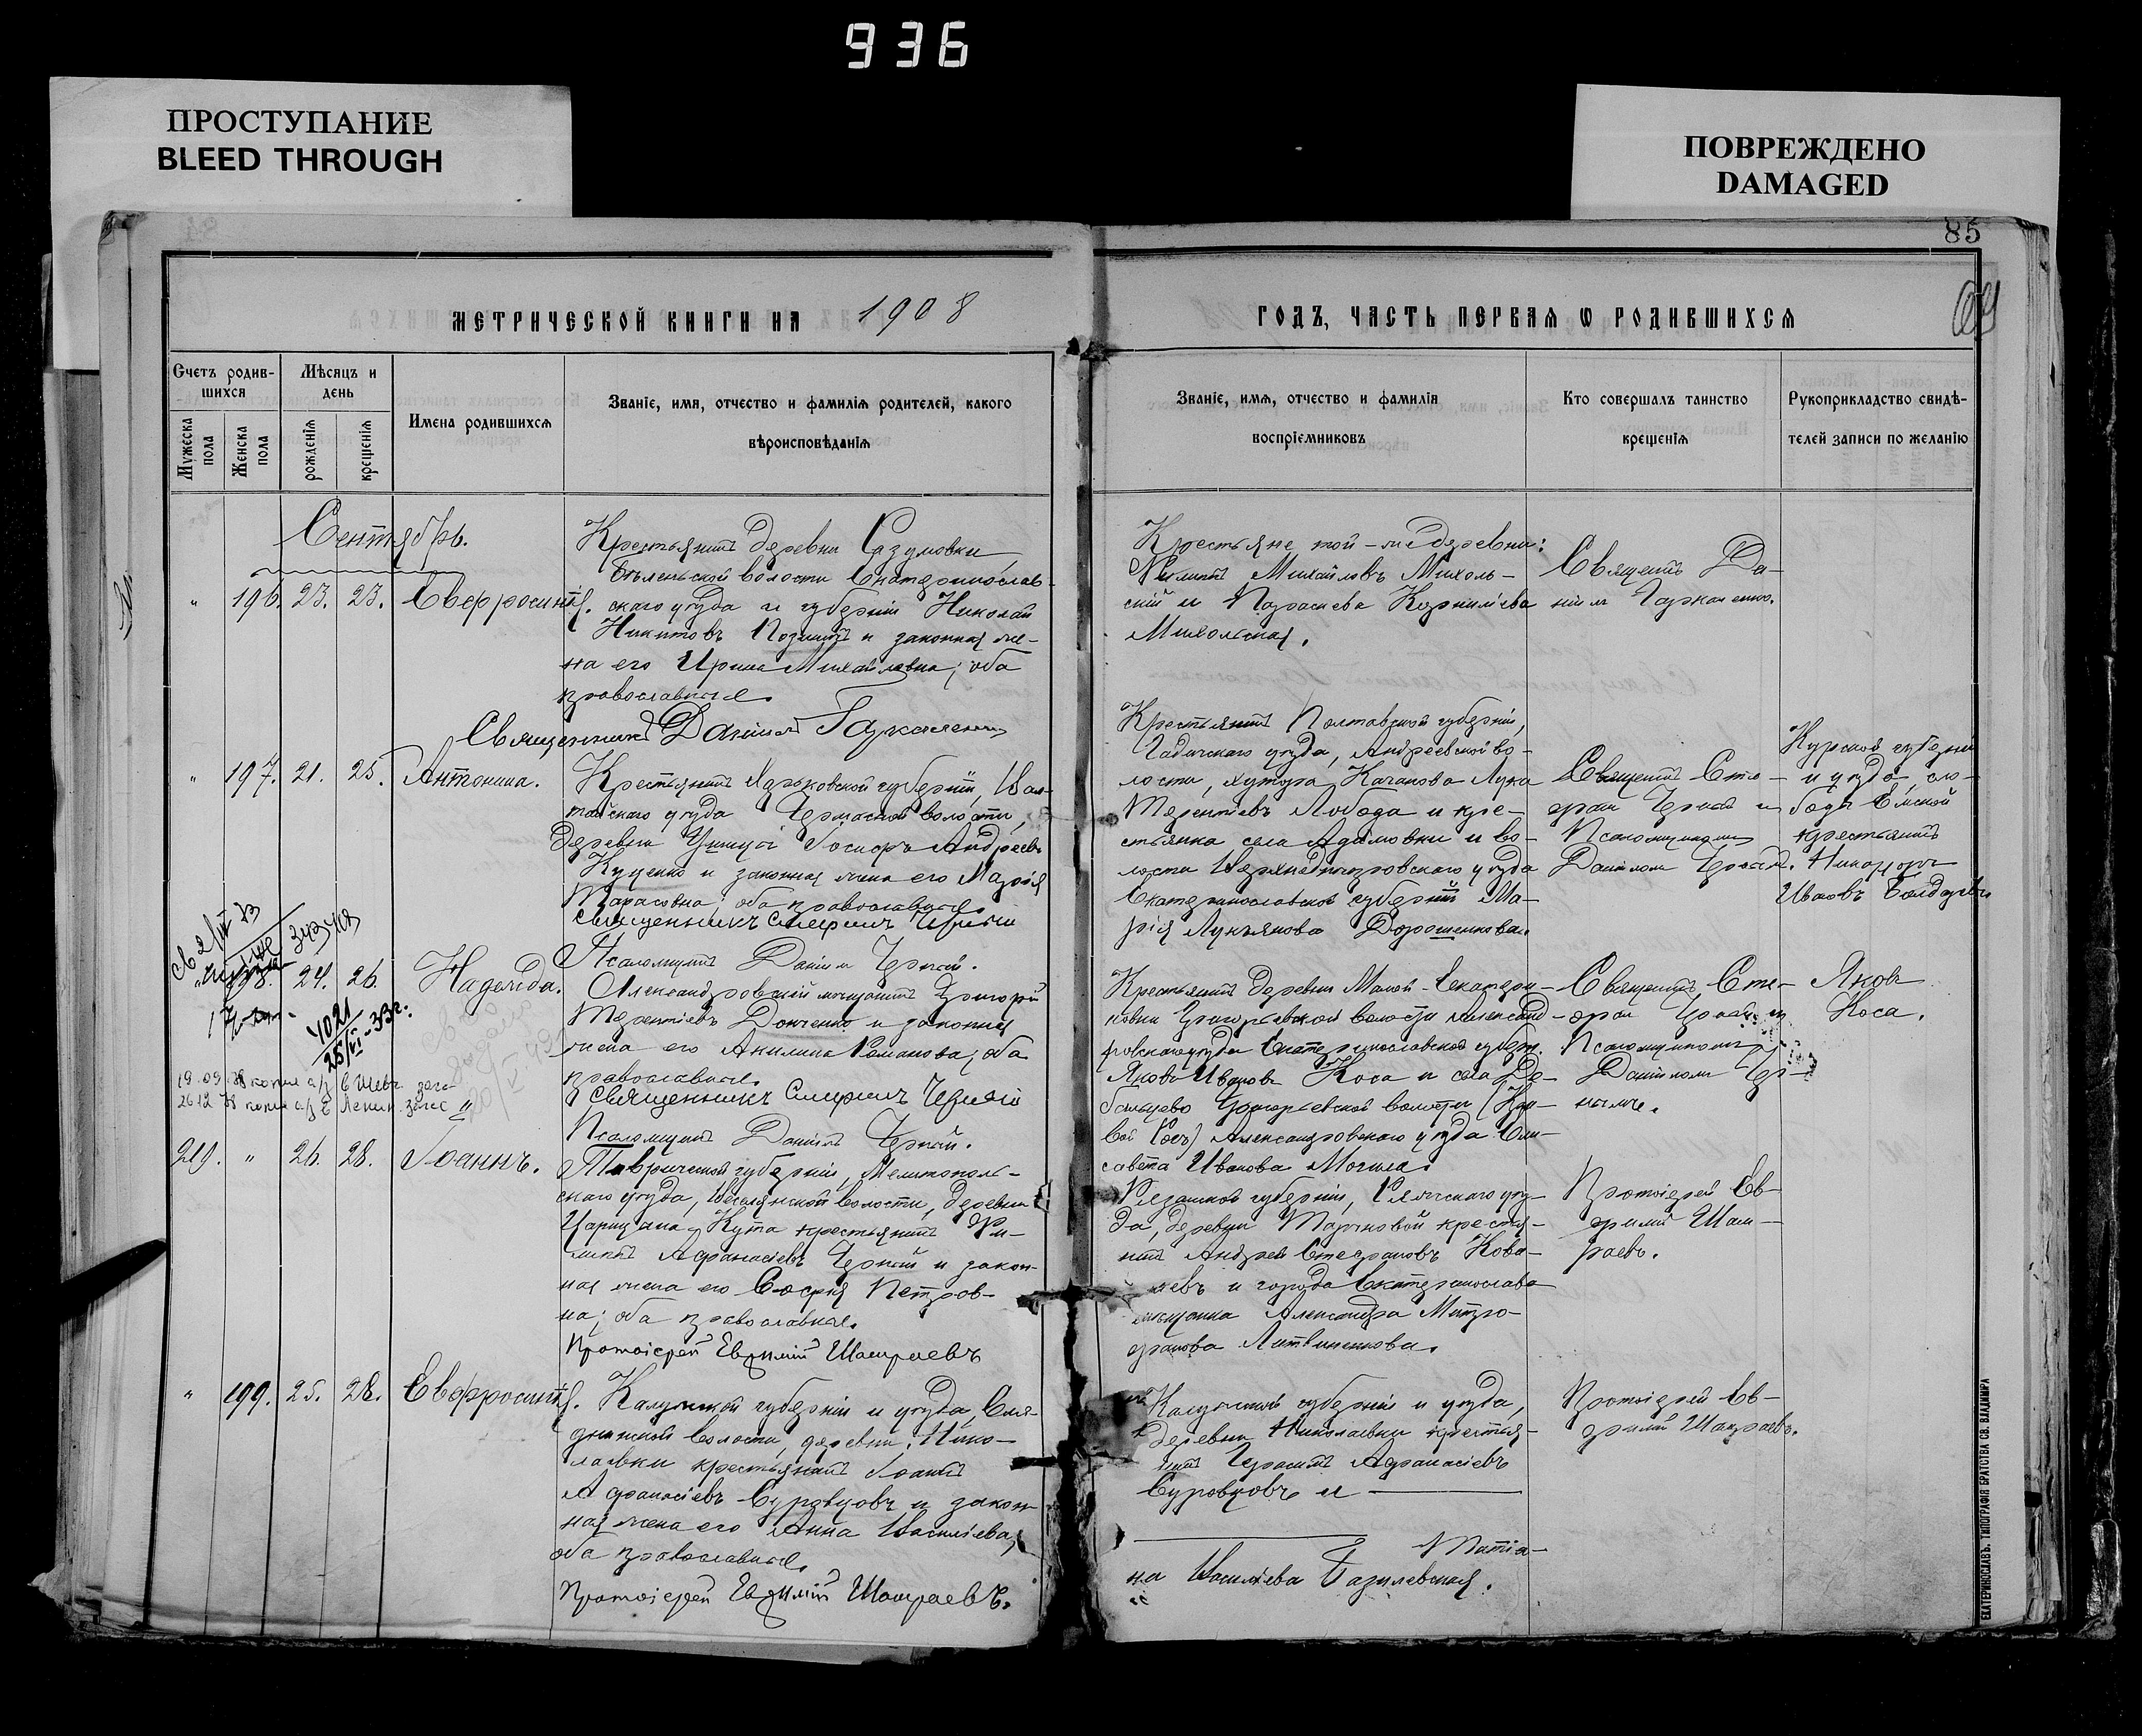 936
ПРОСТУПАНИЕ
BLEED THROUGH
ПОВРЕЖДЕНО
DAMAGED
85
МЕТРИЧЕСКОЙ КНИГИ НА 1908
ГОДЪ, ЧАСТЬ ПЕРВАЯ Ѡ РОДИВШИХСЯ
Счетъ родив-
шихся
Мѣсяцъ и
день
Мужеска
пола
Женска
пола
рожденія
крещенія
Имена родившихся
Званіе, имя, отчество и фамилія родителей, какого
вѣроисповѣданія
Званіе, имя, отчество и фамилія
воспріемниковъ
Кто совершалъ таинство
крещенія
Рукоприкладство свидѣ-
телей записи по желанію
Сентябрь.
" 196. 23. 23. Евфросинія.
Крестьянинъ деревни
волости Екатеринослав-
скаго уѣзда и губерніи Николай
Никитовъ и законная же-
на его Ирина Михайловна; оба
православные.
Священникъ Даніилъ
Крестьяне той-же деревни:
Михайловъ Михоль-
скій и Параскева Корниліева
Михольская.
Священ. Да-
ніилъ
" 197. 21. 25. Антонина.
Крестьянинъ Харьковской губерніи, Вал-
ковскаго уѣзда волости,
деревни Іосифъ Андреевъ
Куценко и законная жена его Марія
Тарасовна; оба православные.
Священникъ Стефанъ Черный
Псаломщикъ Даніилъ Черный.
Крестьянинъ Полтавской губерніи,
Гадячскаго уѣзда, Андреевской во-
лости, хутора Качанова Лука
Терентіевъ Лобода и кре-
стьянка села Адамовки и во-
лости Верхнеднѣпровскаго уѣзда
Екатеринославской губерніи Ма-
рія Лукьянова Дорошенкова.
Священ. Сте-
фан Черный и
Псаломщикъ
Даніилом Черный.
Курской губерніи
и уѣзда, сло-
боды
крестьянинъ
Никифоръ
Ивановъ
198. 24. 26. Надежда.
4021
25/VI-33г.
Александровскій мѣщанинъ Григорій
Терентіевъ Донченко и законная
жена его Акилина Романова; оба
православные.
Священникъ Стефанъ Черный
Псаломщикъ Даніилъ Черный.
Крестьянинъ деревни Малой-Екатери-
новки Григорьевской волости Александ-
ровскаго уѣзда Екатеринославской губерн.
Яковъ Ивановъ Коса и села
Григорьевской волости
Александровскаго уѣзда Ели-
савета Иванова Могила.
Священ. Сте-
фан Черный и
Псаломщикомъ
Даніилом Чер-
нымъ.
Яковъ
Коса.
219. " 26. 28. Іоаннъ.
Таврической губерніи, Мелитополь-
скаго уѣзда, волости, деревни
Царицына Кута крестьянинъ Фи-
липпъ Афанасіевъ Черный и закон-
ная жена его Софія Петров-
на; оба православные.
Протоіерей Евфимій Шамраевъ
Рязанской губерніи, Ряжскаго уѣз-
да, деревни Марьковой крестья-
нинъ Андрей Стефановъ Кова-
левъ и города Екатеринослава
мѣщанка Александра Митро-
фанова Литвиненкова.
Протоіерей Ев-
фимій Шам-
раевъ.
" 199. 25. 28. Евфросинія.
Калужской губерніи и уѣзда,
волости, деревни Нико-
лаевки крестьянинъ Іоаннъ
Афанасіевъ Суровцовъ и закон-
ная жена его Анна Васильева;
оба православные.
Протоіерей Евфимій Шамраевъ.
Калужской губерніи и уѣзда,
деревни Николаевки крестья-
нинъ Герасимъ Афанасіевъ
Суровцовъ и
Татіа-
на Васильева Базилевская.
Протоіерей Ев-
фимій Шамраевъ.
ЕКАТЕРИНОСЛАВЪ. ТИПОГРАФІЯ БРАТСТВА СВ. ВЛАДИМІРА